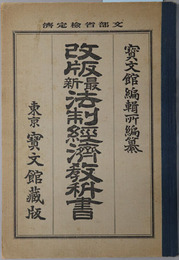 文部省檢定濟
寶文館編輯所編纂
改版最新法制經濟教科書
東京 寶文館藏版